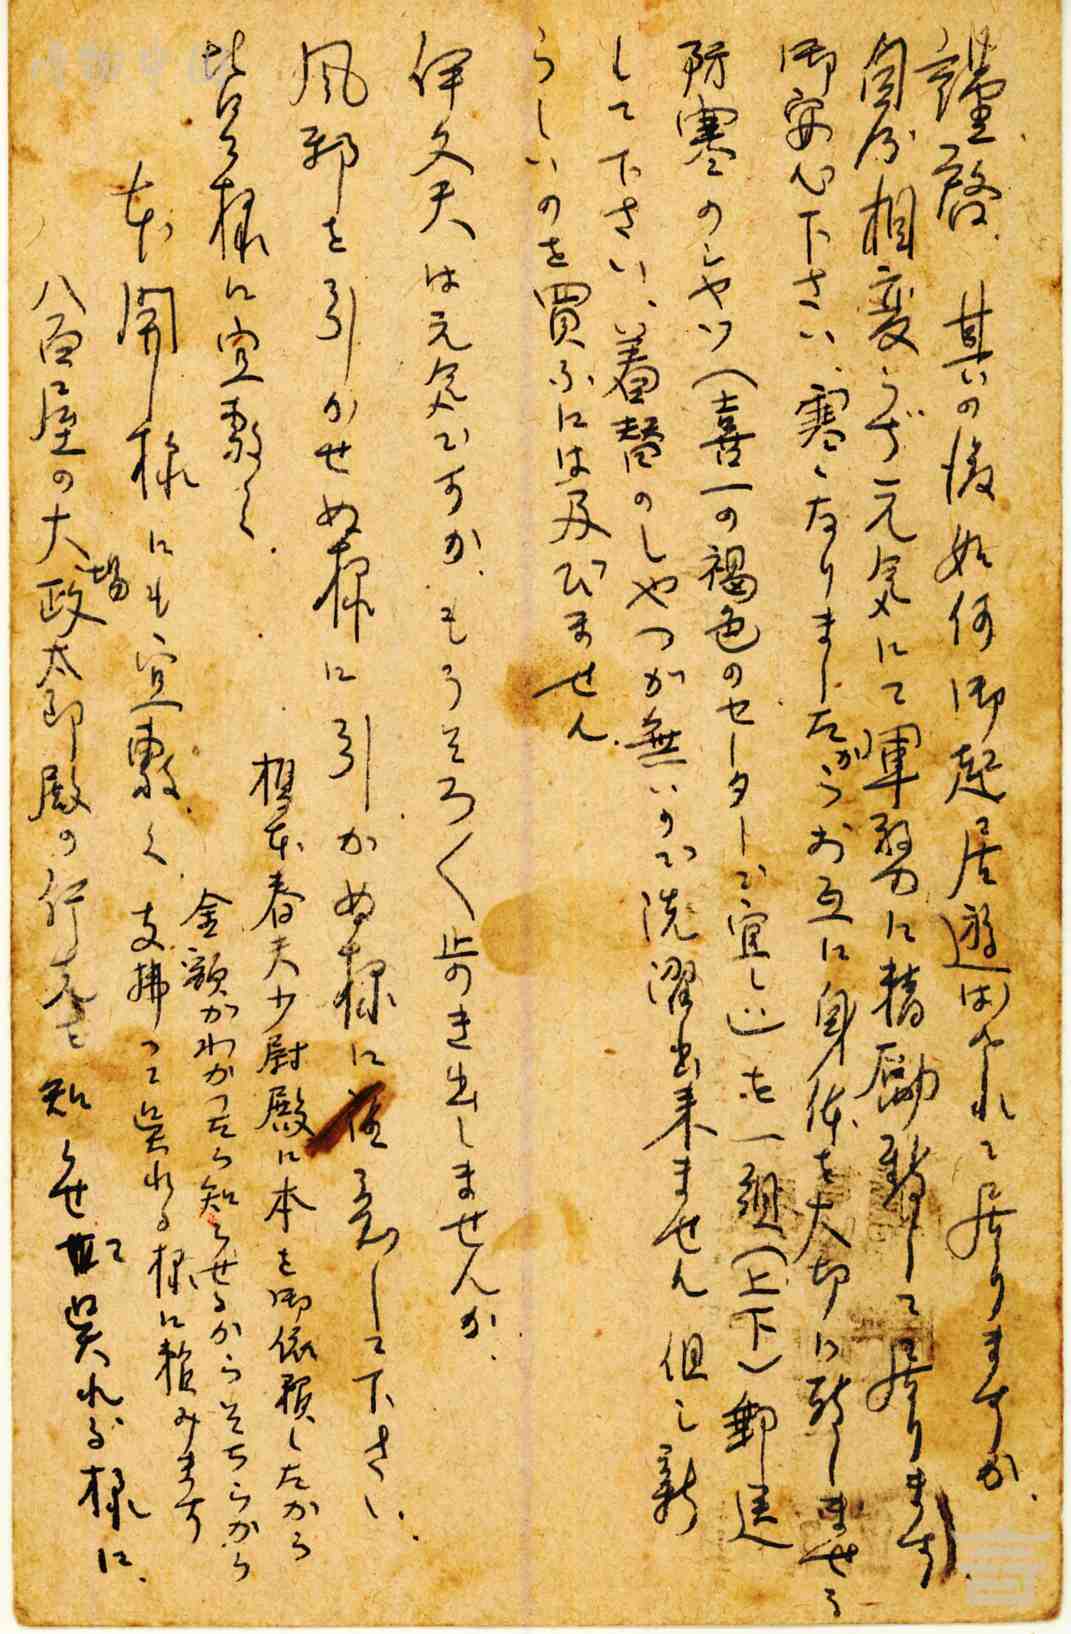 謹啓、其の後如何御起居遊ばされて居りますか。
自分相変らず元気にて軍務に精励致して居ります
御安心下さい、寒くなりましたからお互に身体を大切に致しませう
防寒のシヤツ(喜一の褐色のセーターで宜し)を一組(上下)郵送
して下さい、着替のしやつが無いので洗濯出来ません 但し新
らしいのを買ふには及びません。
伊久夫は元気ですか、もうそろ〱歩き出しませんか。
風邪を引かせぬ様に引かぬ様に注意して下さい。
皆々様に宜敷く。
榎本春夫少尉殿に本を御依頼したから
金額がわかつたら知らせるからそちらから
支拂つて呉れる様に頼みます
本間様にも宜敷く
八百屋の大場政太郎殿の行先を知らせて呉れる様に。